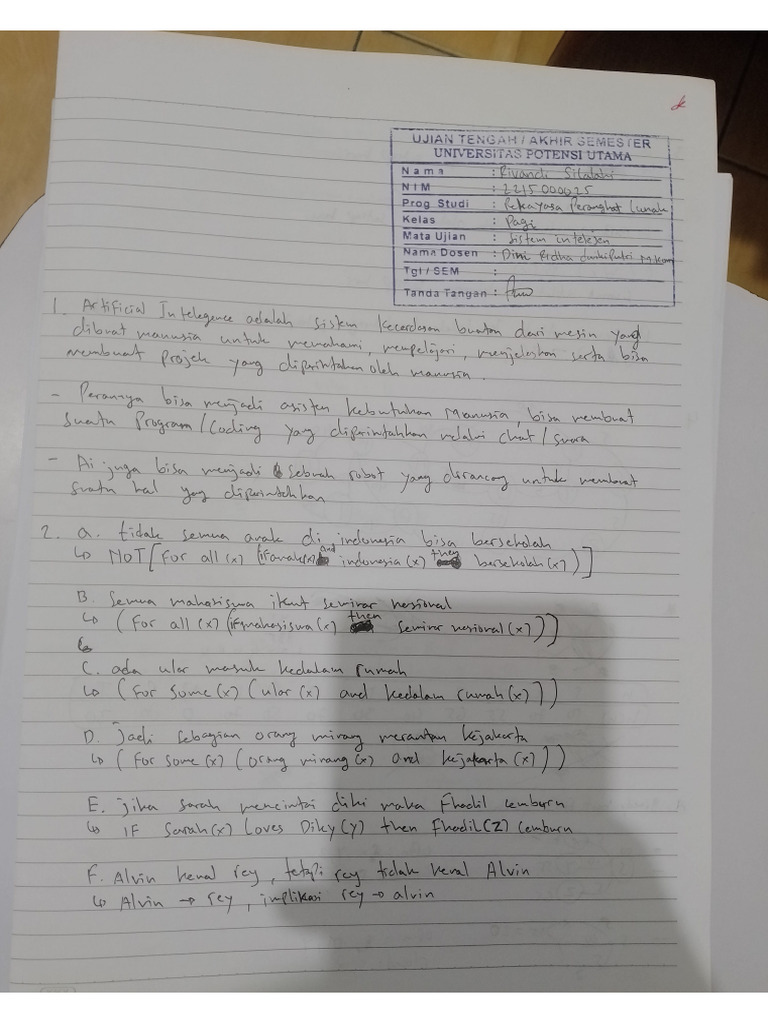 UJIAN TENGAH / AKHIR SEMESTER
UNIVERSITAS POTENSI UTAMA
Nama : Rivandi Silalahi
NIM : 2215000025
Prog Studi : Rekayasa Perangkat Lunak
Kelas : Pagi
Mata Ujian : Sistem intelejen
Nama Dosen : Dini Ridha M.kom
Tgl / SEM :
Tanda Tangan :
1. Artificial Intelegence adalah sistem kecerdasan buatan dari mesin yang
dibuat manusia untuk memahami, mempelajari, menjelaskan serta bisa
membuat projek yang diperintahkan oleh manusia.
- Perannya bisa menjadi asisten kebutuhan Manusia, bisa membuat
suatu Program/Coding yang diperintahkan melalui chat/suara
- Ai juga bisa menjadi sebuah robot yang dirancang untuk membuat
suatu hal yang diperintahkan
2. a. tidak semua anak di indonesia bisa bersekolah
↳ NOT [for all (x) (if anak(x) and indonesia (x) then bersekolah (x))]
B. Semua mahasiswa ikut seminar nasional
↳ (for all (x) (if mahasiswa (x) then seminar nasional (x))]
C. ada ular masuk kedalam rumah
↳ (for some (x) (ular (x) and kedalam rumah (x)])
D. jadi sebagian orang minang merantau kejakarta
↳ (for some (x) (orang minang (x) and kejakarta (x)))
E. jika sarah mencintai diki maka Fhadil cemburu
↳ IF Sarah(x) loves Diky (y) then Fhadil (Z) cemburu
F. Alvin kenal rey, tetapi rey tidak kenal Alvin
↳ Alvin → rey, implikasi rey → alvin